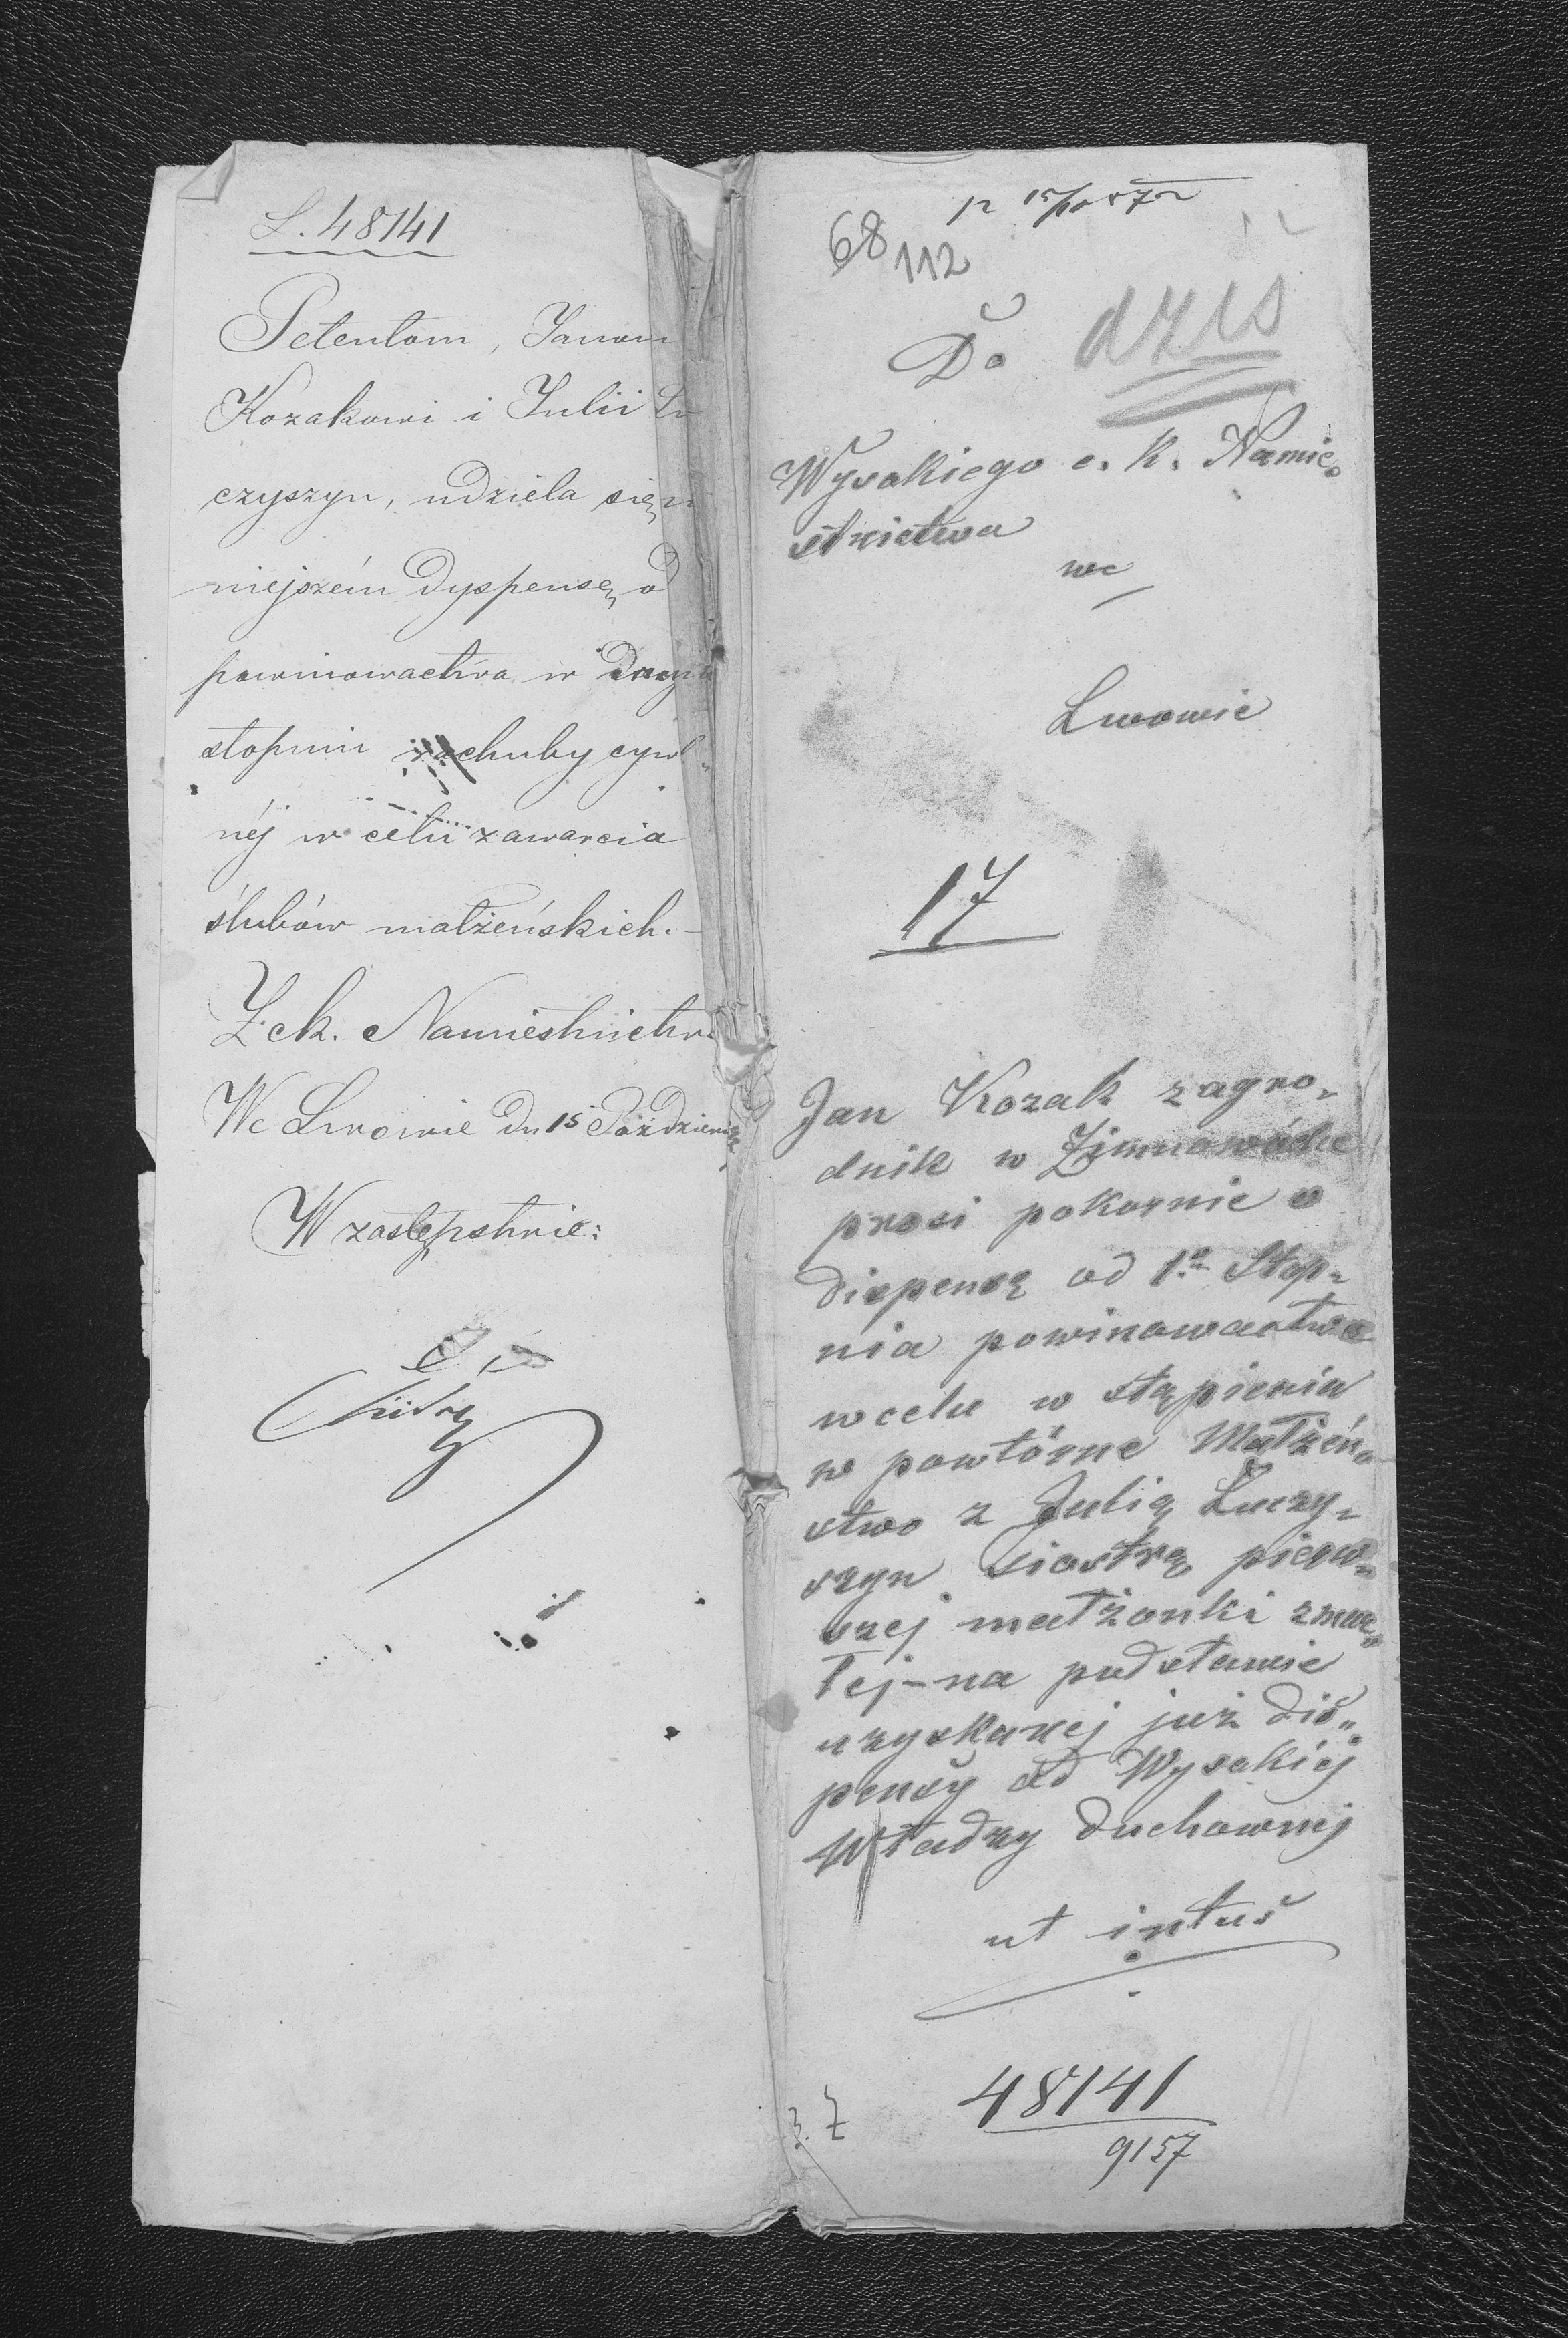 L. 48141
Petentom, Janowi
Kozakowi i Julii Łu
czyszyn, udziela się ni
niejszém Dyspensę od
powinowactwa w Drugim
stopniu rachuby cywil„
néj w celu zawarcia
ślubów małżeńskich.
Z ck. Namiestnictwa
We Lwowie dn 15 Paździer
W zastępstwie:
pr 15/10 872
68
112
dziś
Do
Wysokiego c. k. Namie„
stnictwa
we
Lwowie
17
Jan Kozak zagro„
dnik w Zimnowódce
prosi pokornie o
dispensę od 1º Stop„
nia powinowactwa
w celu w stąpienia
w powtórne Małżeń„
stwo z Julią Łuczy„
szyn siostrą pierw„
szej małżonki zmar„
łej – na podstawie
uzyskanej już dis„
pensy od Wysokiéj
Władzy duchownej
ut intus
48141
9157